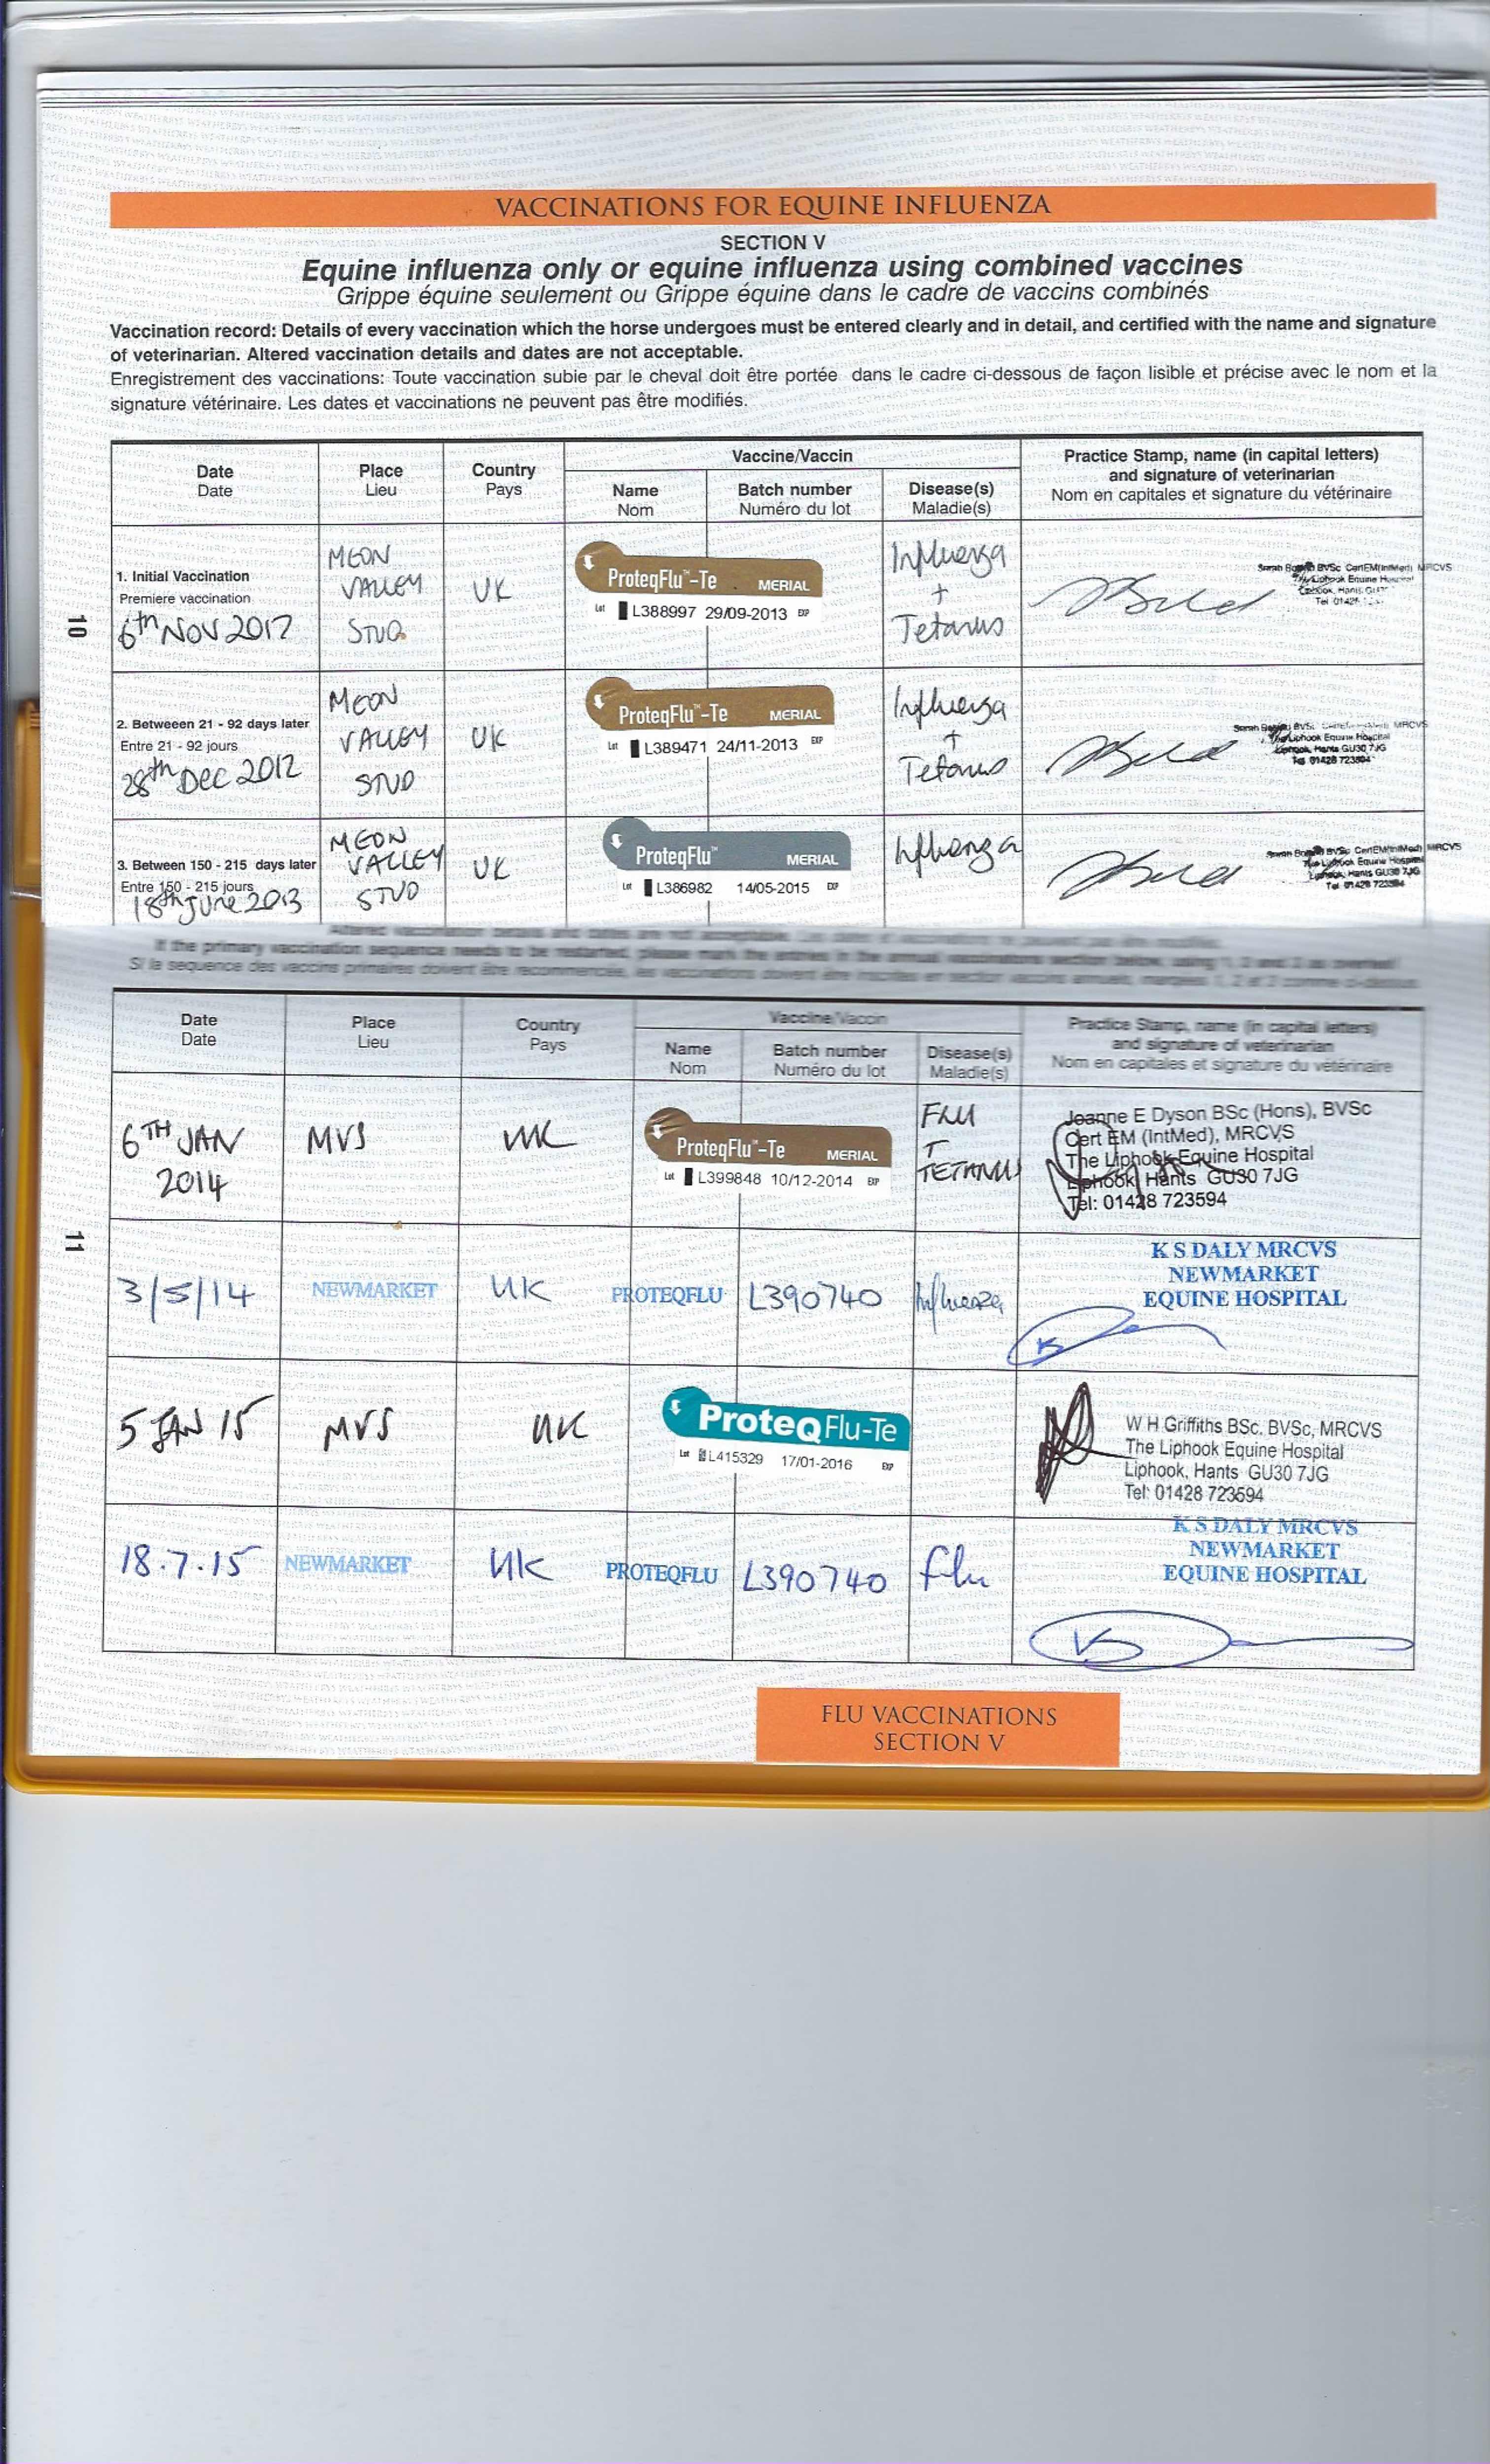 VACCINATIONS FOR EQUINE INFLUENZA
SECTION V
Equine influenza only or equine influenza using combined vaccines
Grippe équine seulement ou Grippe équine dans le cadre de vaccins combinés
Vaccination record: Details of every vaccination which the horse undergoes must be entered clearly and in detail, and certified with the name and signature
of veterinarian. Altered vaccination details and dates are not acceptable.
Enregistrement des vaccinations: Toute vaccination subie par le cheval doit être portée dans le cadre ci-dessous de façon lisible et précise avec le nom et la
signature vétérinaire. Les dates et vaccinations ne peuvent pas être modifiés.
Date
Date
Place
Lieu
Country
Pays
Vaccine/Vaccin
Name
Nom
Batch number
Numéro du lot
Disease(s)
Maladie(s)
Practice Stamp, name (in capital letters)
and signature of veterinarian
Nom en capitales et signature du vétérinaire
10
1. Initial Vaccination
Premiere vaccination
6th NOV 2012
MEON
VALLEY
STUD
UK
ProteqFlu™-Te MERIAL
Lot L388997 29/09-2013 EXP
Influenza
+
Tetanus
BVSc CertEM(IntMed) MRCVS
The Liphook Equine Hospital
Liphook, Hants
Tel 01428
2. Betweeen 21 - 92 days later
Entre 21 - 92 jours
28th DEC 2012
MEON
VALLEY
STUD
UK
ProteqFlu™-Te MERIAL
Lot L389471 24/11-2013 EXP
Influenza
+
Tetanus
BVSc MRCVS
The Liphook Equine Hospital
Liphook, Hants GU30 7JG
Tel 01428 723594
3. Between 150 - 215 days later
Entre 150 - 215 jours
18th June 2013
MEON
VALLEY
STUD
UK
ProteqFlu™ MERIAL
Lot L386982 14/05-2015 EXP
Influenza
BVSc CertEM(IntMed) MRCVS
The Liphook Equine Hospital
Liphook, Hants GU30 7JG
Tel 01428 723594
Altered vaccination details and dates are not acceptable.
If the primary vaccination sequence needs to be restarted, please mark the entries in the annual vaccinations section below, using 1, 2 and 3 as overleaf
Si la sequence des vaccins primaires doivent être recommencée, les vaccinations doivent être inscrites en section vaccins annuels, marquées 1, 2 et 3 comme ci-dessus
Date
Date
Place
Lieu
Country
Pays
Vaccine/Vaccin
Name
Nom
Batch number
Numéro du lot
Disease(s)
Maladie(s)
Practice Stamp, name (in capital letters)
and signature of veterinarian
Nom en capitales et signature du vétérinaire
11
6TH JAN
2014
MVS
UK
ProteqFlu™-Te MERIAL
Lot L399848 10/12-2014 EXP
FLU
+
TETANUS
Joanne E Dyson BSc (Hons), BVSc
Cert EM (IntMed), MRCVS
The Liphook Equine Hospital
Liphook, Hants GU30 7JG
Tel: 01428 723594
3/5/14
NEWMARKET
UK
PROTEQFLU
L390740
Influenza
K S DALY MRCVS
NEWMARKET
EQUINE HOSPITAL
5 JAN 15
MVS
UK
ProteqFlu-Te
Lot L415329 17/01-2016 EXP
W H Griffiths BSc, BVSc, MRCVS
The Liphook Equine Hospital
Liphook, Hants GU30 7JG
Tel: 01428 723594
18.7.15
NEWMARKET
UK
PROTEQFLU
L390740
Flu
K S DALY MRCVS
NEWMARKET
EQUINE HOSPITAL
FLU VACCINATIONS
SECTION V